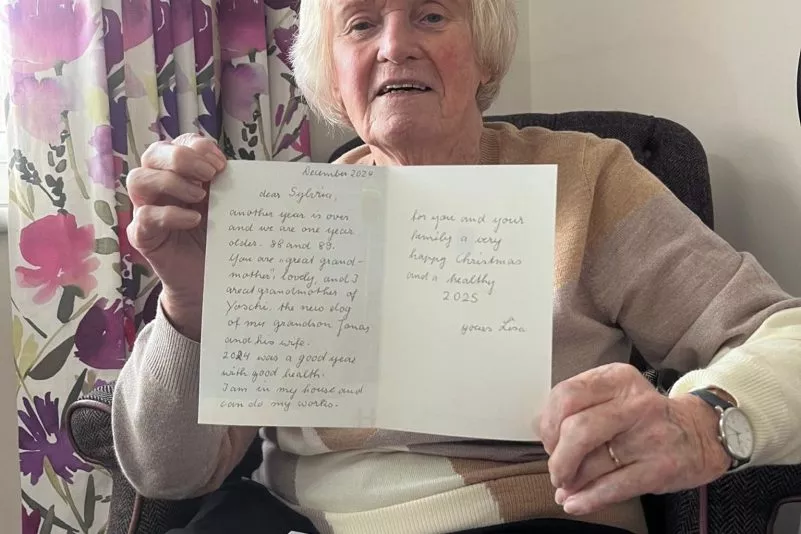 December 2024
dear Sylvia,
another year is over
and we are one year
older. 88 and 89.
You are "great grand-
mother", lovely, and I
great grandmother of
Yoschi, the new dog
of my grandson Jonas
and his wife.
2024 was a good year
with good health.
I am in my house and
can do my works.
for you and your
family a very
happy Christmas
and a healthy
2025
yours Lisa